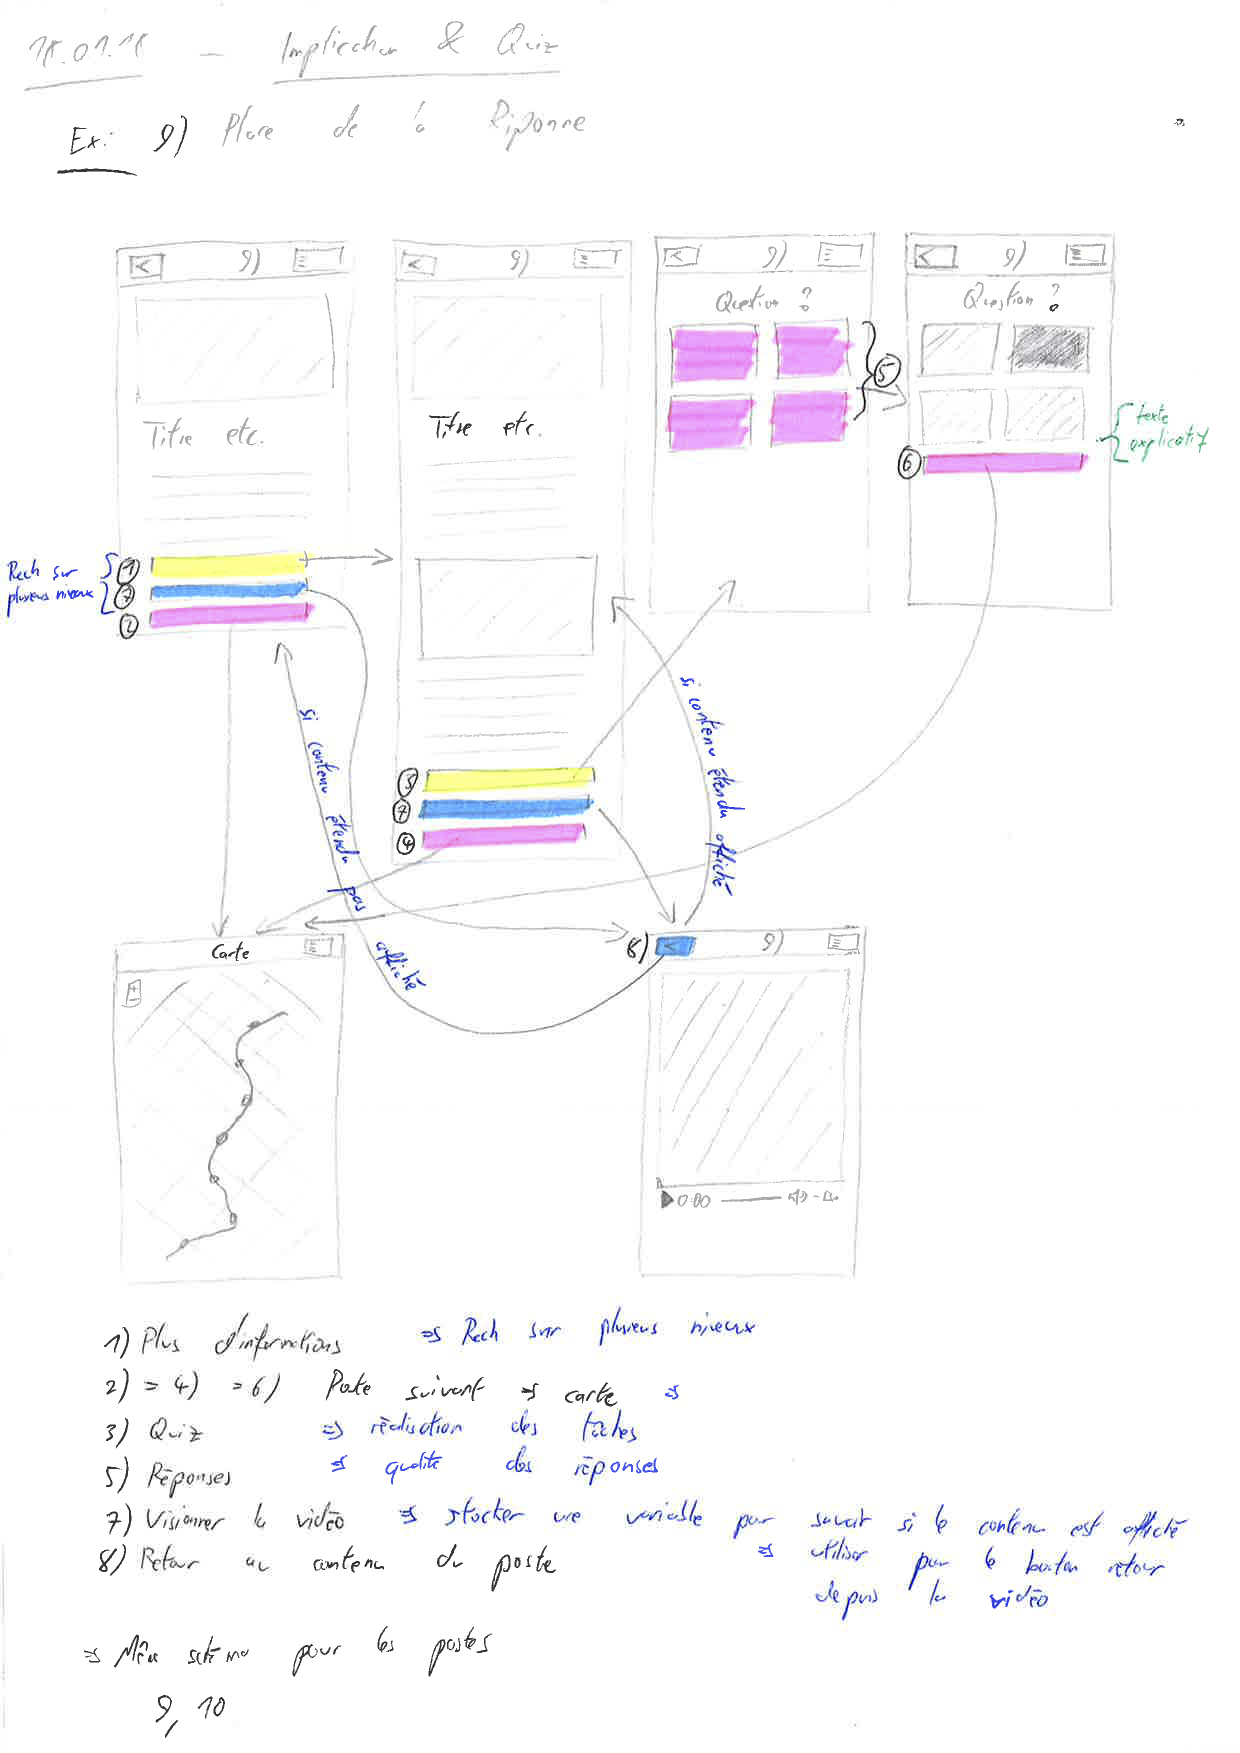 18.01.18 – Implication & Quiz
Ex: 9) Place de la Riponne
9)
9)
9)
9)
Question ?
Question ?
Titre etc.
Titre etc.
5
texte
explicatif
6
Rech sur
plusieurs niveaux
1
7
2
si contenu étendu pas affiché
si contenu étendu affiché
3
7
4
Carte
8)
<
9)
+
-
0:00
1) Plus d'informations ⇒ Rech sur plusieurs niveaux
2) = 4) = 6) Poste suivant ⇒ carte ⇒
3) Quiz ⇒ réalisation des tâches
5) Réponses ⇒ qualité des réponses
7) Visionner la vidéo ⇒ stocker une variable pour savoir si le contenu est affiché
8) Retour au contenu du poste ⇒ utiliser pour le bouton retour
depuis la vidéo
⇒ Même schéma pour les postes
9, 10